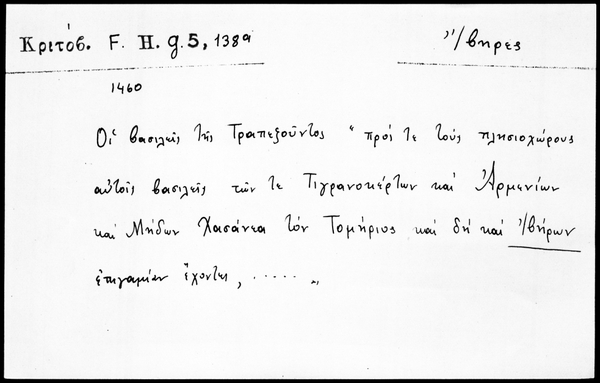 Κριτόβ. F. H. G. 5, 138α
Ἴβηρες
1460
Οἱ βασιλεῖς τῆς Τραπεζοῦντος "πρός τε τοὺς πλησιοχώρους
αὐτοῖς βασιλεῖς τῶν τε Τιγρανοκέρτων καὶ Ἀρμενίων
καὶ Μήδων Χασάνεα τὸν Τομήριος καὶ δὴ καὶ Ἰβήρων
ἐπιγαμίαν ἔχοντες, ..... "